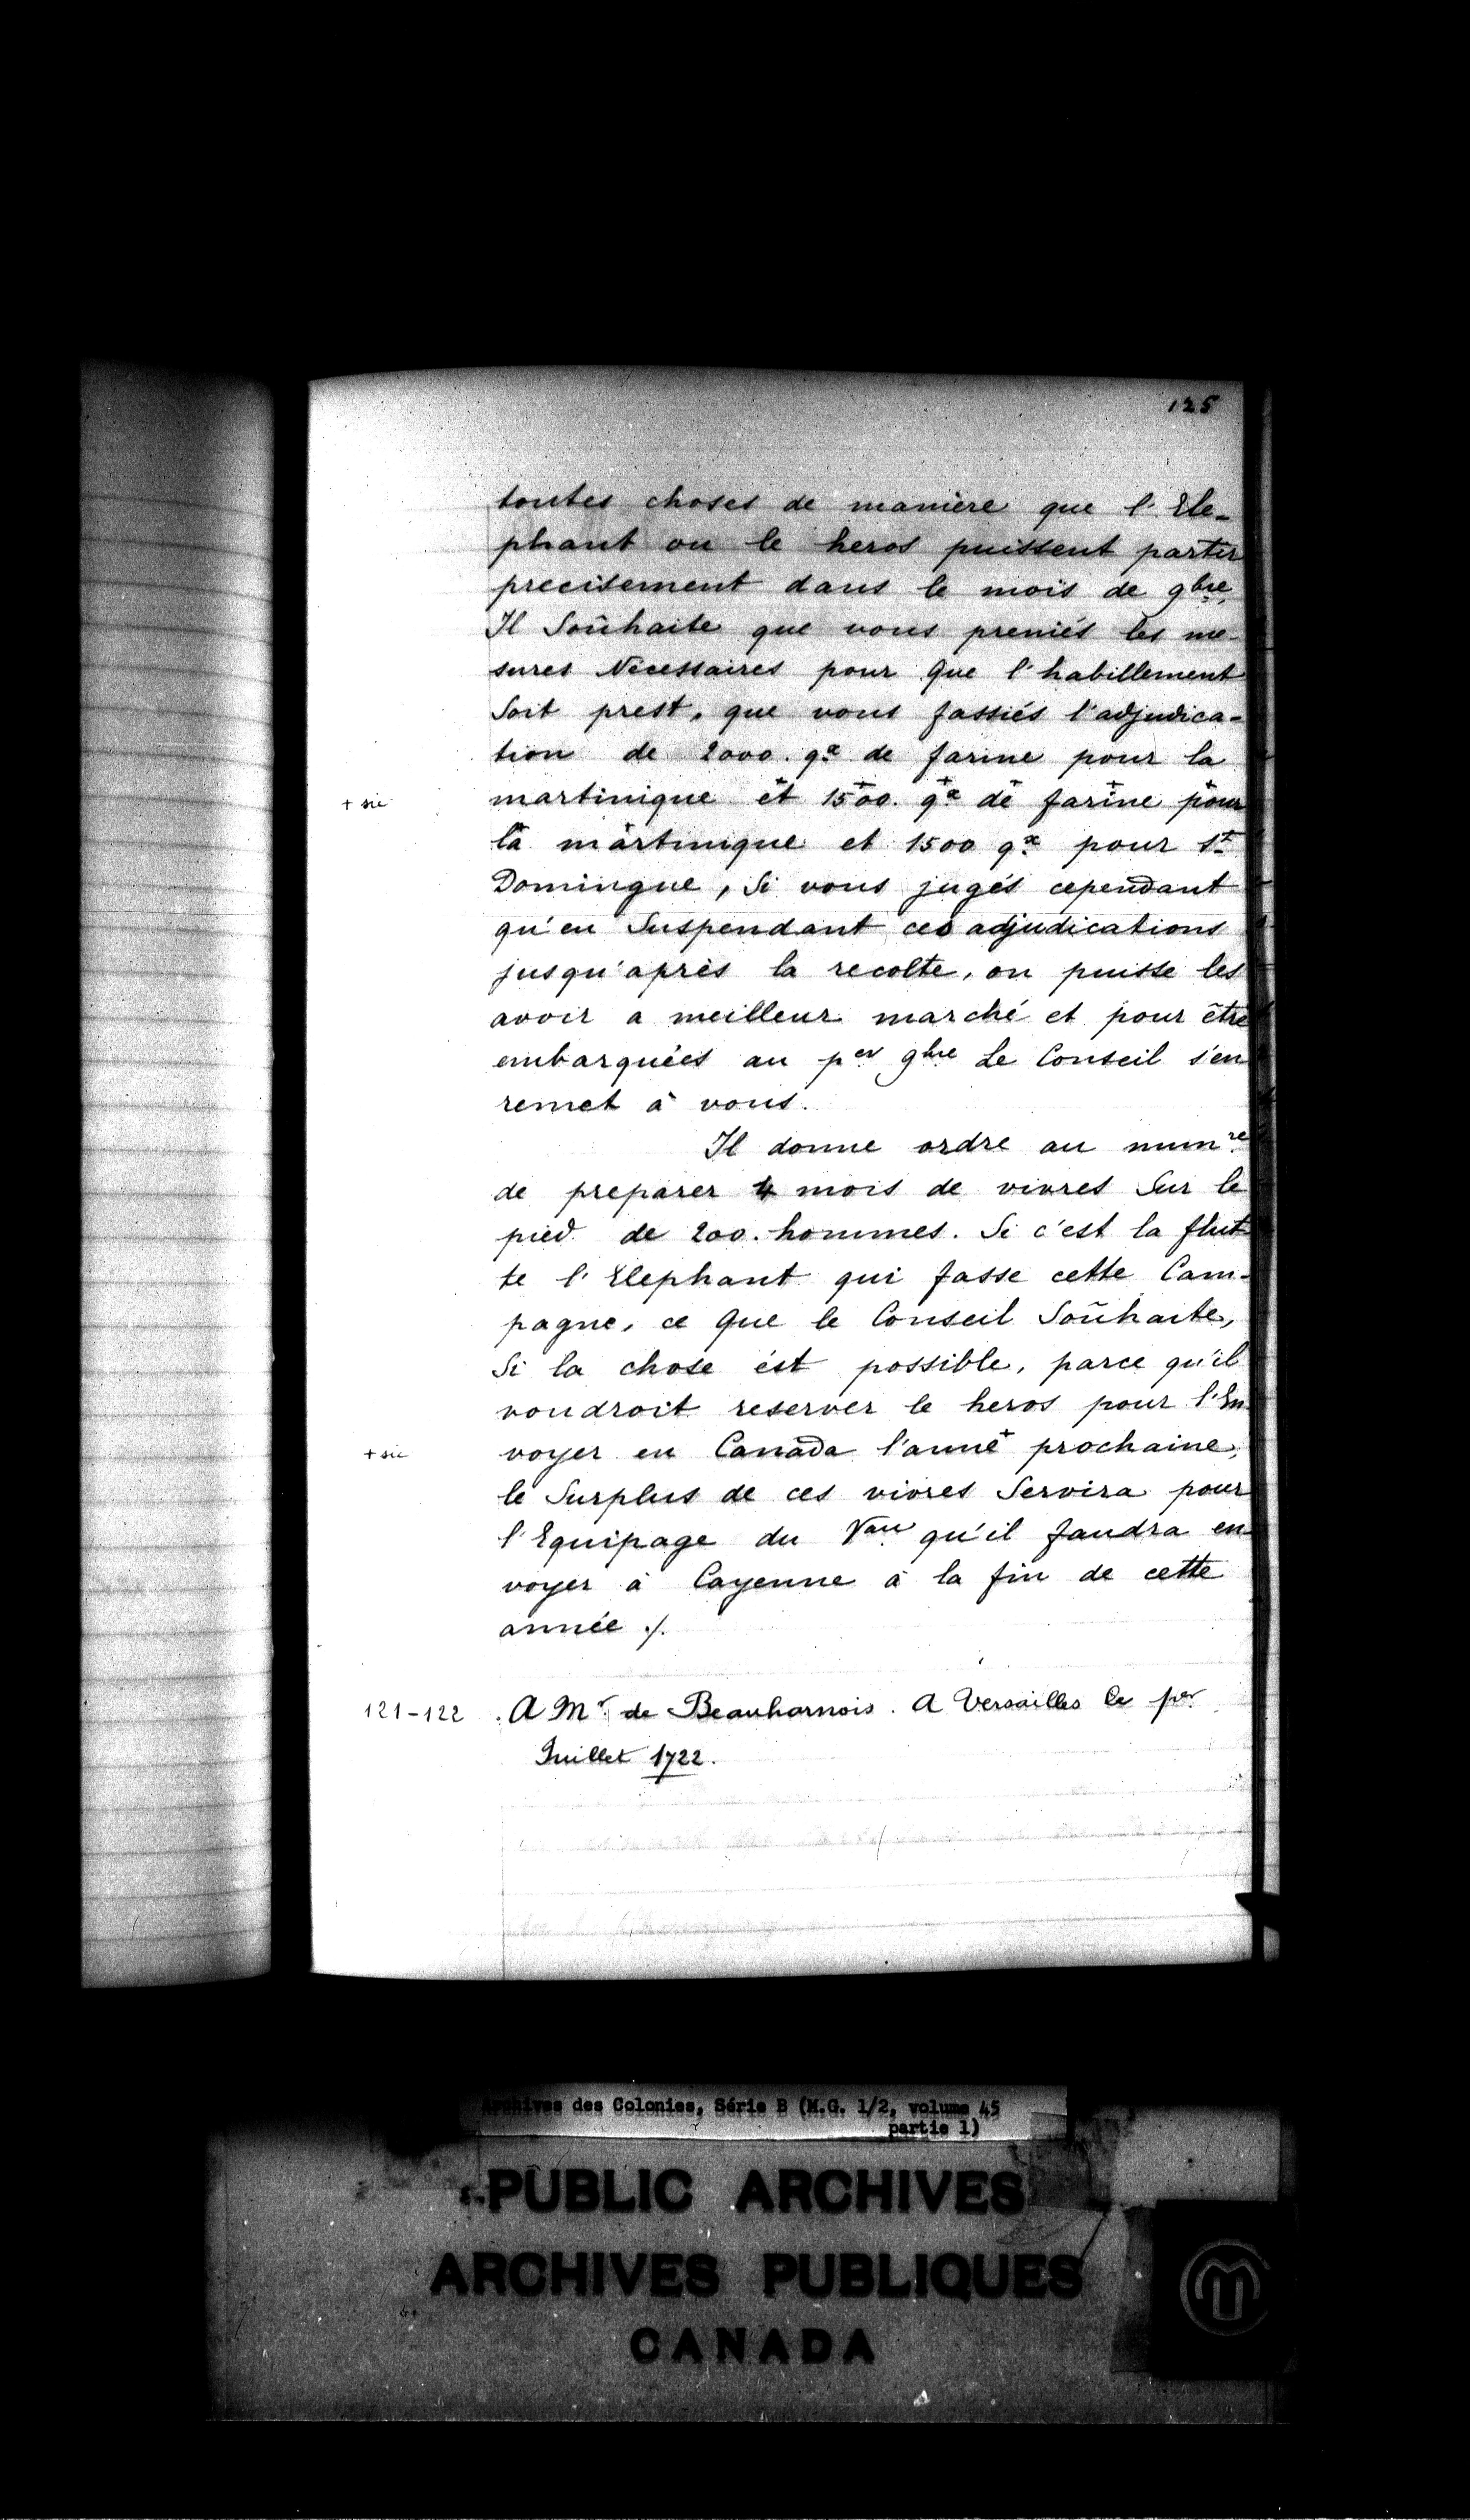 125
toutes choses de manière que l'Ele-
phant ou le heros puissent partir
precisement dans le mois de 9bre,
Il Soûhaite que vous preniés les me-
sures Necessaires pour Que l'habillement
Soit prest, que vous fassiés l'adjudica-
tion de 2000. qx de farine pour la
+ sic martinique et 1500. qx de farine pour
la martinique et 1500 qx pour St
Domingue, Si vous jugés cependant
qu'en Suspendant ces adjudications
jusqu'après la recolte, on puisse les
avoir a meilleur marché et pour être
embarquées au per 9bre Le Conseil s'en
remet à vous.
Il donne ordre au munre
de preparer 4 mois de vivres Sur le
pied de 200. hommes. Si c'est la flut
te l'Elephant qui fasse cette Cam-
pagne, ce Que le Conseil Soûhaite,
Si la chose ést possible, parce qu'il
voudroit reserver le heros pour l'En
+ sic voyer en Canada l'anné+ prochaine,
le Surplus de ces vivres Servira pour
l'Equipage du Vau qu'il faudra en
voyer à Cayenne à la fin de cette
année ./.
121-122 . A Mr de Beauharnois. A Versailles le per
Juillet 1722.
Archives des Colonies, Série B (M.G. 1/2, volume 45
partie 1)
PUBLIC ARCHIVES
ARCHIVES PUBLIQUES
CANADA